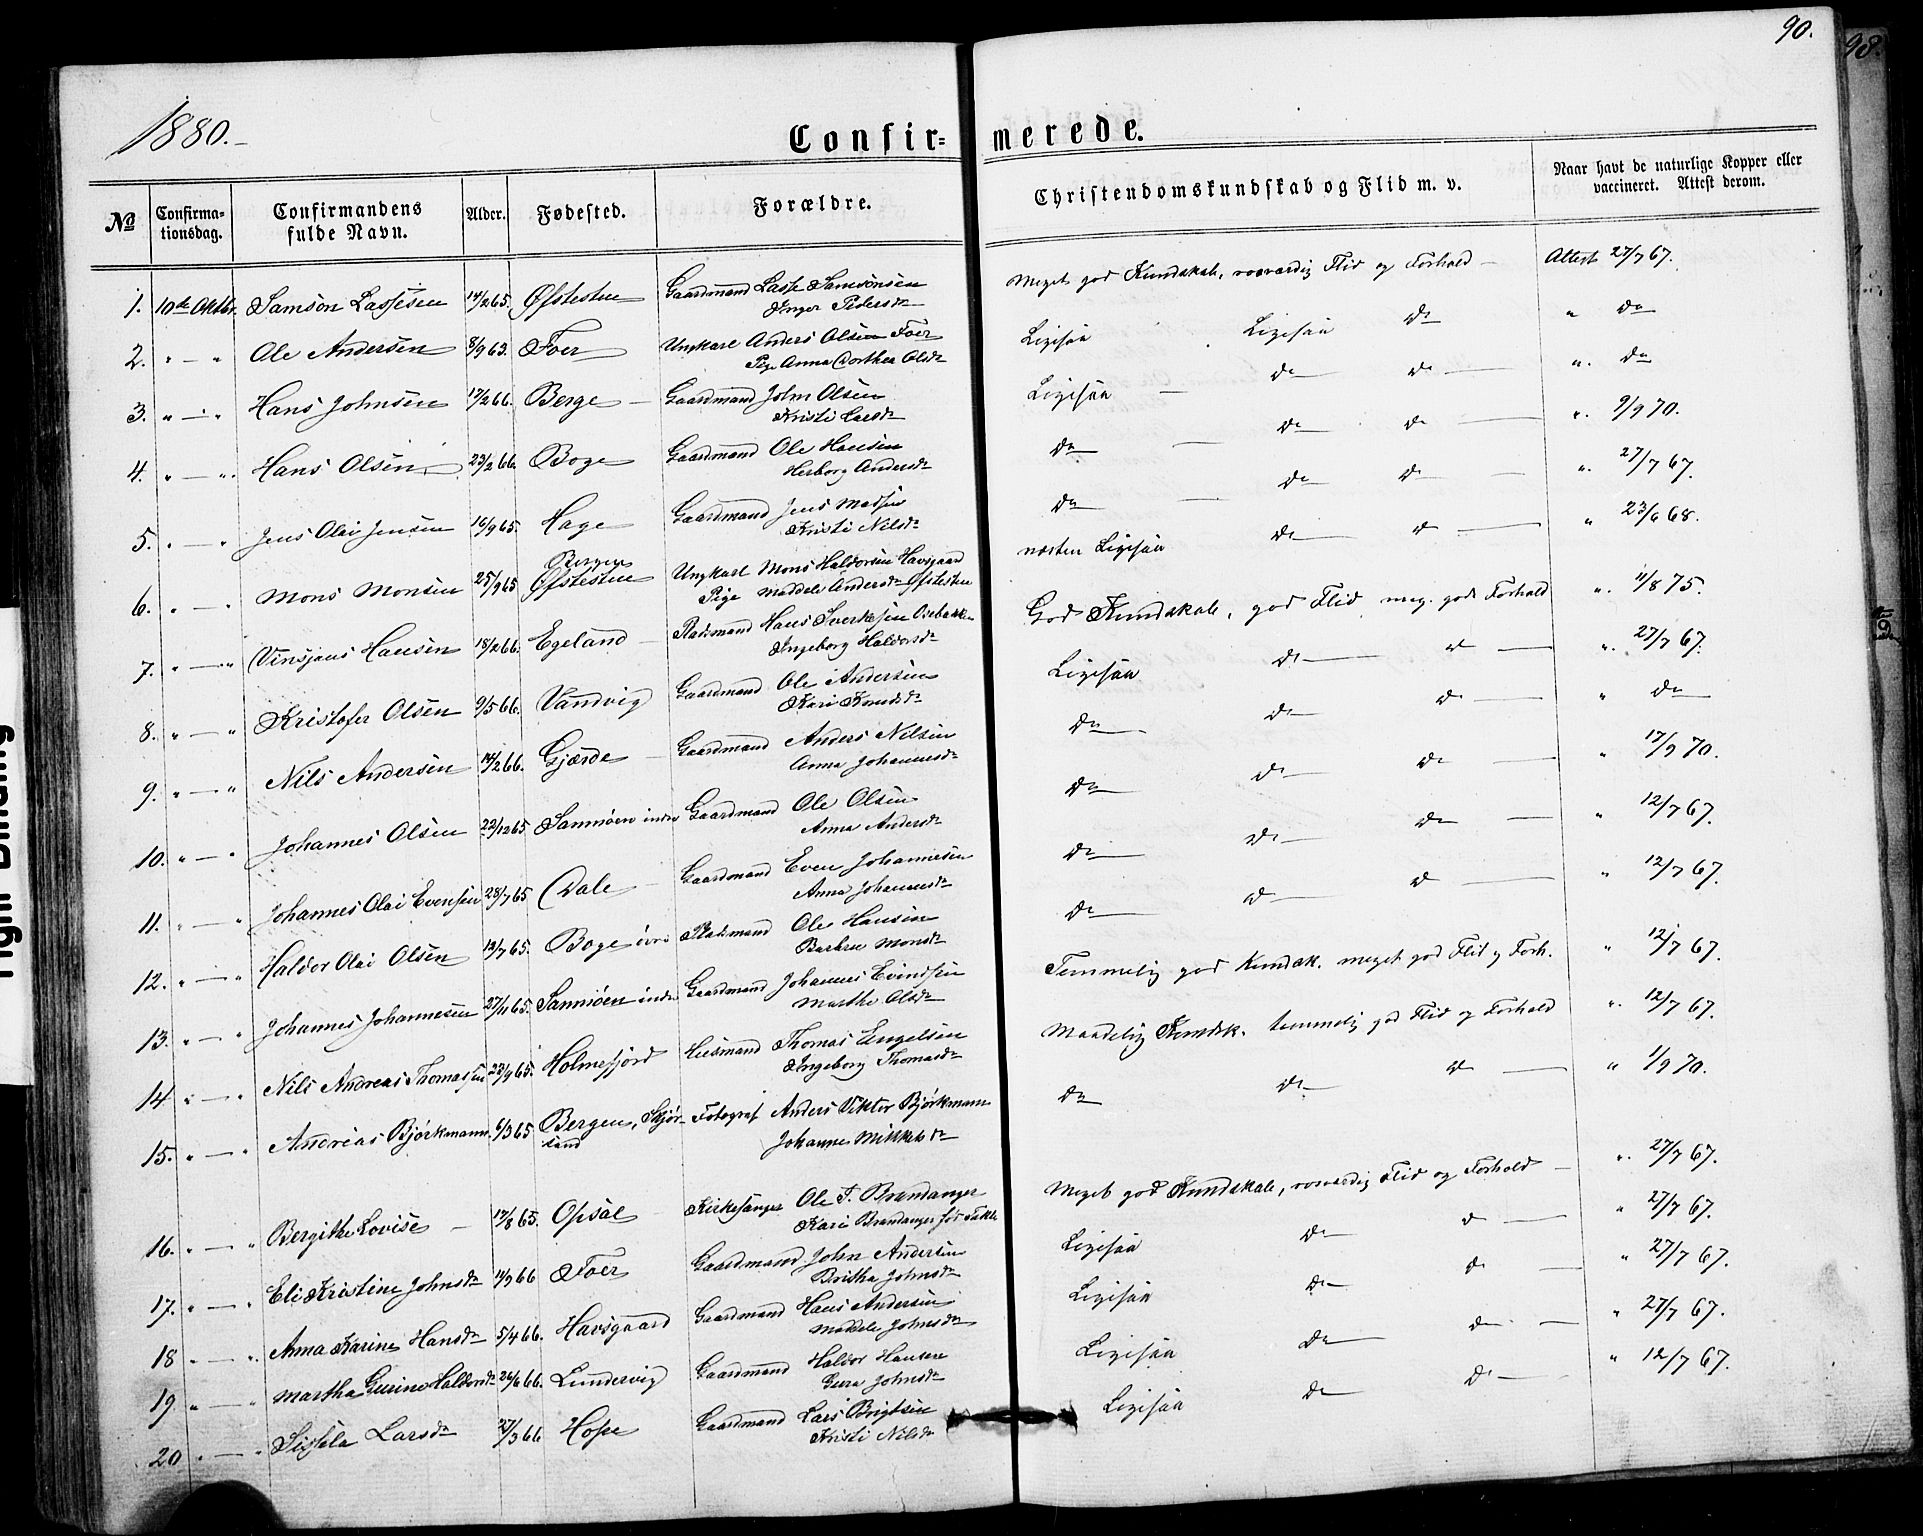 90.
98.
1880.-
Confir- merede.
No Confirma-tionsdag. Confirmandens fulde Navn. Alder. Fødested. Forældre. Christendomskundskab og Flid m. v. Naar havt de naturlige Kopper eller vaccineret. Attest derom.
1. 10de Oktbr. Samson Lassesen 14/2 65. Øfstestue Gaardmand Lasse Samsonsen Meget god Kundskab, rosværdig Flid og Forhold - Attest 27/7 67.
Inger Pedersdr
2. " — " Ole Andersen 8/9 63. Foer Ungkarl Anders Olsen Foer Ligesaa Ligesaa do " do
Pige Anna Dorthea Olsdr
3. " — " Hans Johnsen 17/2 66. Berge — Gaardmand John Olsen Ligesaa — do do " do
Kristi Larsdr
4. " — " Hans Olsen 23/2 66. Boge Gaardmand Ole Hansen do — do do " 9/9 70.
Herborg Andersdr
5. " — " Jens Olai Jensen 16/9 65. Hage Gaardmand Jens Madsen do — do do " 27/7 67.
Kristi Nilsdr
6. " — " Mons Monsen 25/9 65 Bergen Øfstestue Ungkarl Mons Haldorsen Havsgaard næsten Ligesaa do do " 23/6 68.
Pige Maddele Andersdr Øfstestue
7. " — " Vinsjans Hansen 18/2 66. Egeland — Pladsmand Hans Sverkesen God Kundskab, god Flid, meg. godt Forhold " 11/8 75.
Ingeborg Haldorsdr
8. " — " Kristofer Olsen 9/5 66. Vandvig Gaardmand Ole Andersen Ligesaa do do " 27/7 67.
Kari Knudsdr
9. " — " Nils Andersen 14/2 66. Gjærde — Gaardmand Anders Nilsen do do do " do
Anna Johannesdr
10. " — " Johannes Olsen 22/12 65. Samnøen indre Gaardmand Ole Olsen do do do " 17/9 70.
Anna Andersdr
11. " — " Johannes Olai Evensen 28/7 65 Dale — Gaardmand Even Johannesen do do do " 12/7 67.
Anna Johannesdr
12. " — " Haldor Olai Olsen 13/7 65. Boge øvre Pladsmand Ole Hansen do do do " 12/7 67.
Barbru Monsdr
13. " — " Johannes Johannesen 27/11 65. Samnøen indre Gaardmand Johannes Evindsen Temmelig god Kundsk. meget god Flid og Forh. " 12/7 67.
Marthe Olsdr
14 " — " Nils Andreas Thomassen 23/9 65. Holmefjord Huusmand Thomas Engelsen Maadelig Kundsk. temmelig god Flid og Forhold " 12/7 67.
Ingeborg Thomasdr
15. " — " Andreas Bjørkmann 6/3 65 Bergen, Skjørsand Fotograf Anders Viktor Bjørkmann do do do " 1/9 70.
Johanne Mikkelsdr
16. " — " Bergithe Lovise — 17/8 65. Opsal — Kirkesanger Ole T. Brandanger Meget god Kundskab, rosværdig Flid og Forhold — " 27/7 67.
Kari Brandanger fød Takle
17. " — " Eli Kristine Johnsdr 11/3 66 Foer Gaardmand John Andersen Ligesaa do do " 27/7 67.
Britha Johnsdr
18 " — " Anna Karine Hansdr 5/4 66. Havsgaard Gaardmand Hans Andersen Ligesaa do do " 27/7 67.
Madele Johnsdr
19 " — " Martha Gurine Haldorsdr 26/6 66. Lundervig Gaardmand Haldor Hansen Ligesaa do do " 27/7 67.
Gura Johnsdr
20 " — " Sissela Larsdr 27/3 66 Hope Gaardmand Lars Brigtsen Ligesaa do do " 12/7 67.
Kristi Nilsdr
Tight Binding